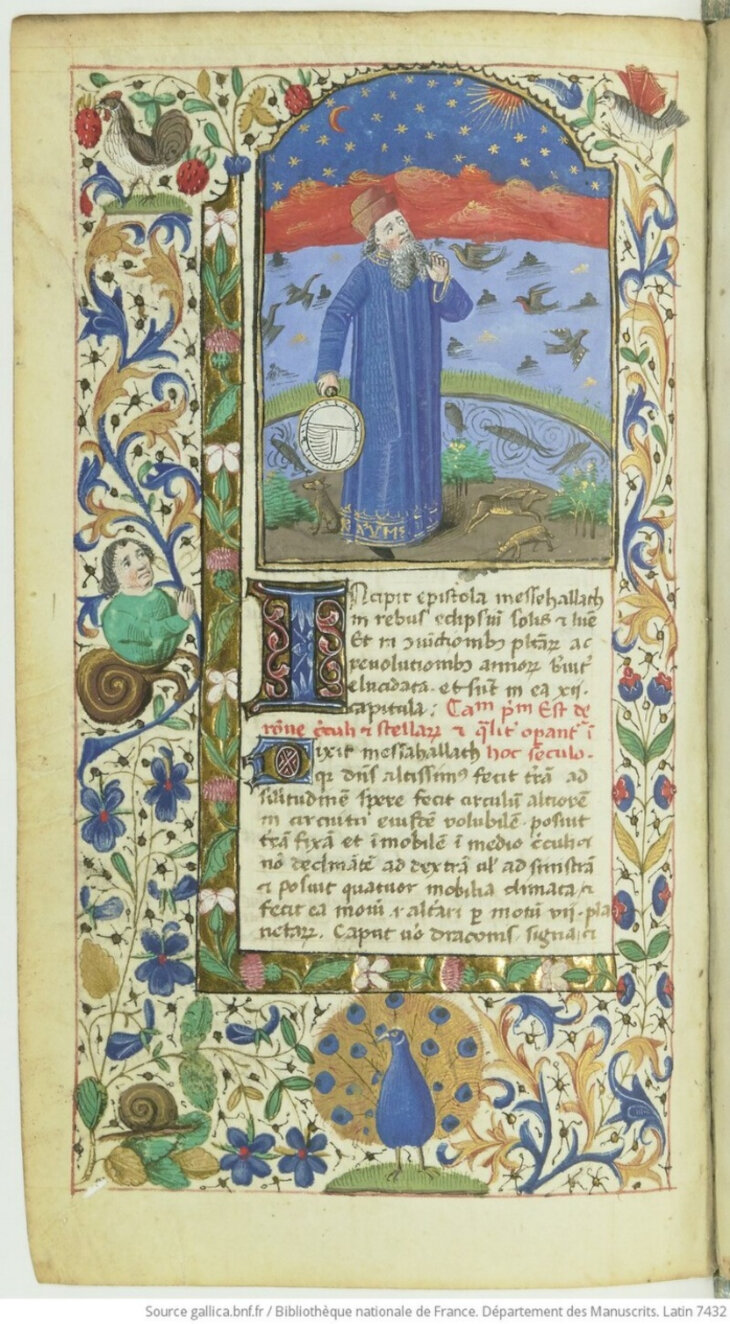 AVMS
Incipit epistola messehallach
in rebus eclipsiū solis & lūe
Et in ↄiūctiombȝ pltāꝝ ac
reuolutiombȝ annoꝝ
elucidata. et sūt in ea xij.
capitula: Cam pm Est de
rōne ċculi & stellaꝝ & q̄lit̄ opant̄ ī
Dixit messahallach hoc seculo.
qr dns altissimꝰ fecit trā ad
silitudinē spere fecit circulū altiorē
in circuitu eiusdē volubilē. posuit
trā fixā et īmobilē ī medio ċculi
nō declinātē ad dextrā ul' ad sinistrā
& posuit quatuor mobilia climata
fecit ea moūi & altari ꝑ motū vij. pla
netaꝝ. Caput ūo draconis signa
Source gallica.bnf.fr / Bibliothèque nationale de France. Département des Manuscrits. Latin 7432